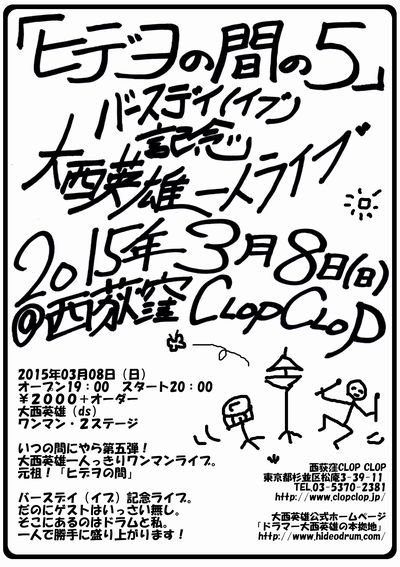 「ヒデヲの間の5」
バースデイ(イブ)
記念
大西英雄一人ライブ
2015年3月8日(日)
@西荻窪 CLOP CLOP
2015年03月08日（日）
オープン19：00　スタート20：00
￥2000＋オーダー
大西英雄（ds）
ワンマン・2ステージ
いつの間にやら第五弾！
大西英雄一人っきりワンマンライブ。
元祖！「ヒデヲの間」
バースデイ（イブ）記念ライブ。
だのにゲストはいっさい無し。
そこにあるのはドラムと私。
一人で勝手に盛り上がります！
西荻窪CLOP CLOP
東京都杉並区松庵3-39-11
TEL.03-5370-2381
http://www.clopclop.jp/
大西英雄公式ホームページ
「ドラマー大西英雄の本拠地」
http://www.hideodrum.com/